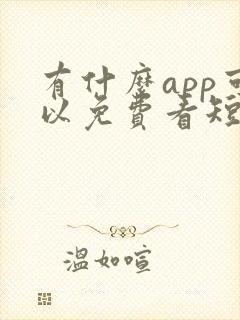 有什麼app可
以免費看短
溫如喧